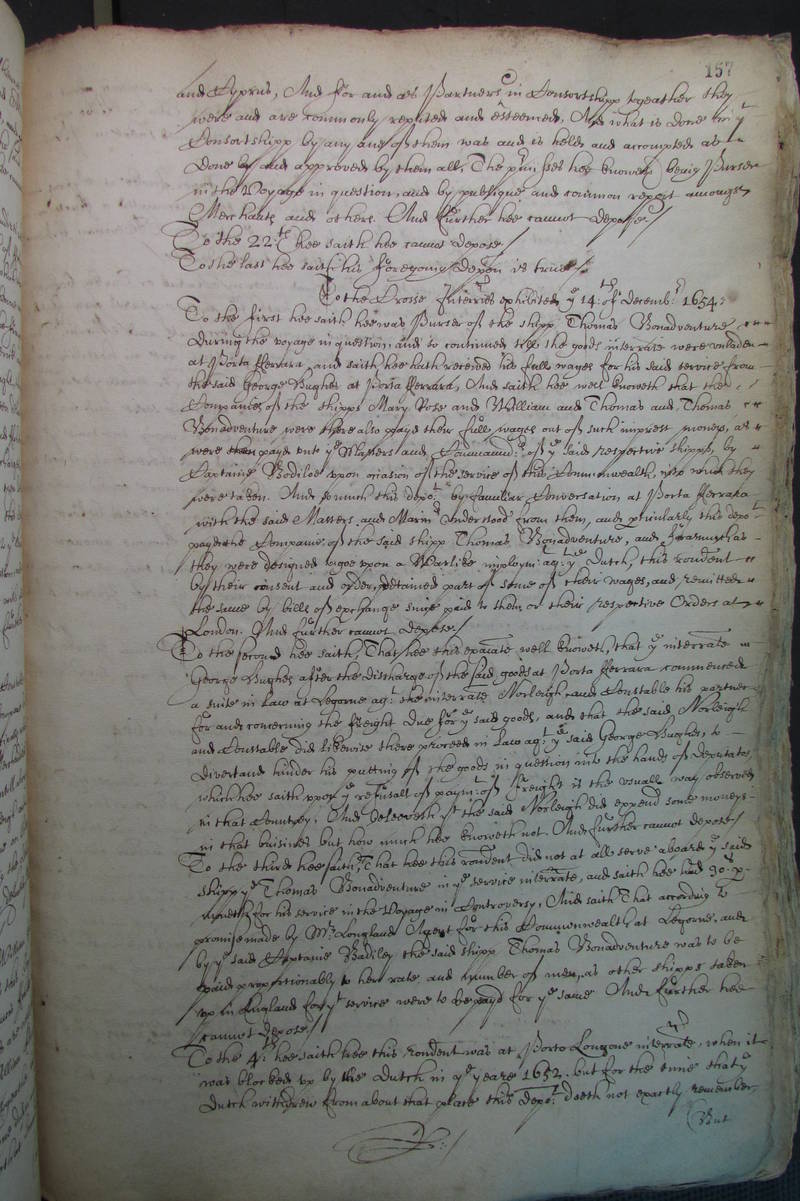 157
and Cyprus, And for and as Partners in Consortshipp togeather they
were and are commonly reputed and esteemed, And what is done in yt
Consortshipp by any one of them was and is held and accompted as
done by and approved by them all, The premisses hee knoweth being Purser
in the Voyage in question, and by publique and common report amongst
Merchants and others. And further hee cannot depose./
To the 22:th hee saith hee cannot depose/
To the last hee saith his foregoing depon is true./
To the Crosse Interries exhibited ye 14:th of Decembr: 1654:
To the first hee saith hee was Purser of the shipp Thomas Bonadventure
during the voyage in question, and so continued till the goods interrate were unladen
at Porta fferrara, and saith hee hath received his full wages for his said service from
the said George Hughes at Porta fferrara, And saith hee well knoweth that the
Companies of the shipps Mary Rose and William and Thomas and Thomas
Bonadventure were there also payd their full wages out of such imprest moneys, as
were payd unto ye Masters and Commandrs: of ye said respective shipps, by
Captaine Badiloe upon occasion of the service of this Commonwealth, into which they
were taken. And so much this depot: by familiar Conversation at Porta fferrara
with the said Masters and Marinrs understood from them, and perticularly this depot
payd the Companie of the said shipp Thomas Bonadventure, and forasmuch as
they were designed to goe upon a Warlike imploymt: agt: ye Dutch, this rondent
by their consent and order, detained part of some of their wages, and remitted
the same by bills of exchange since paid to them or their respective Orders at
London. And further cannot depose./
To the second hee saith, That hee this examate well knoweth, that ye interrate
George Hughes after the discharge of the said goods at Porta fferrara commenced
a suite in Law at Legorne agt: the interrate Norleigh and Constable his partner
for and concerning the freight due for ye said goods, and that the said Norleigh
and Constable did likewise there proceed in Law agt: ye said George Hughes, to
divert and hinder his putting of the goods in question into the hands of Deputates,
which hee saith upon ye refusall of paymt: of freight is the usuall way observed
in that Countrey; And beleeveth yt the said Norleigh did expend some moneys
in that buisines but how much hee knoweth not. And further cannot depose/
To the third hee saith, That hee this rondent did not at all serve aboard ye said
shipp ye Thomas Bonadventure in ye service interrate, and saith hee had 90s. p
moneth for his service in the Voyage in Controversy, And saith That according to
promise made by Mr: Longland Agent for this Commonwealth at Legorne, and
by ye said Captaine Badiley the said shipp Thomas Bonadventure was to be
paid proportionably to her rate and number of men, as other shipps taken
up in England for yt service were to be payd for ye same And further hee
cannot depose/
To the 4:th hee saith hee this rondent was at Porto Longone interrate, when it
was blocked up by the Dutch in ye yeare 1652. but for the time that ye
Dutch withdrew from about that place this depot: doeth not exactly remember.
But